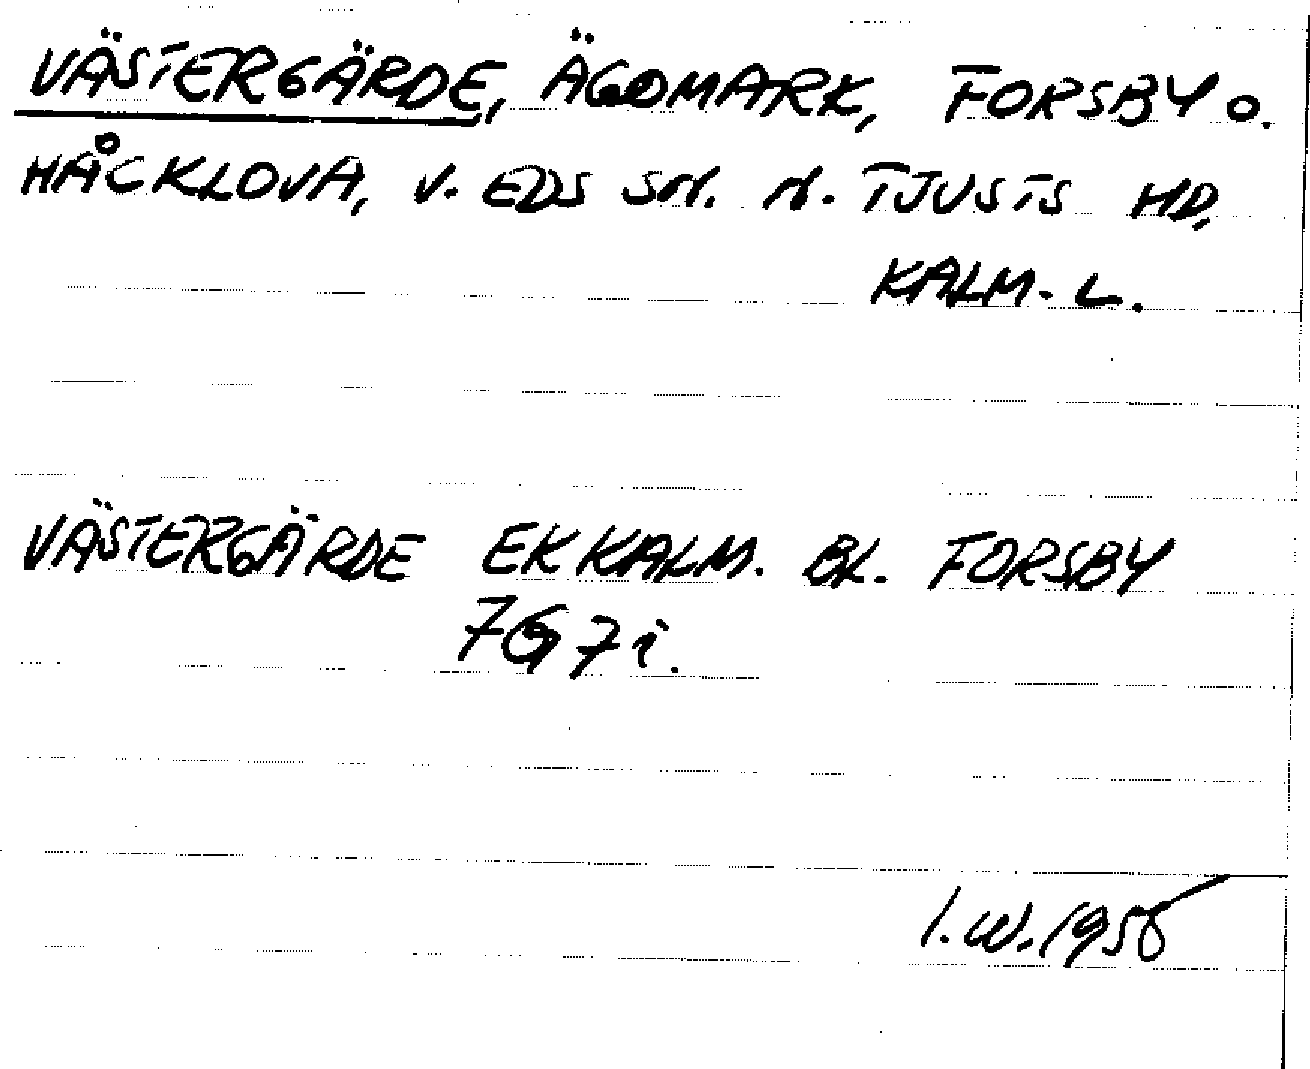 VÄSTERGÄRDE, ÄGOMARK, FORSBY O.
HÅCKLOVA, V. EDS SN. N. TJUSTS HD,
KALM. L.
VÄSTERGÄRDE EK KALM. BL. FORSBY
7G 7i.
I.W. 1958